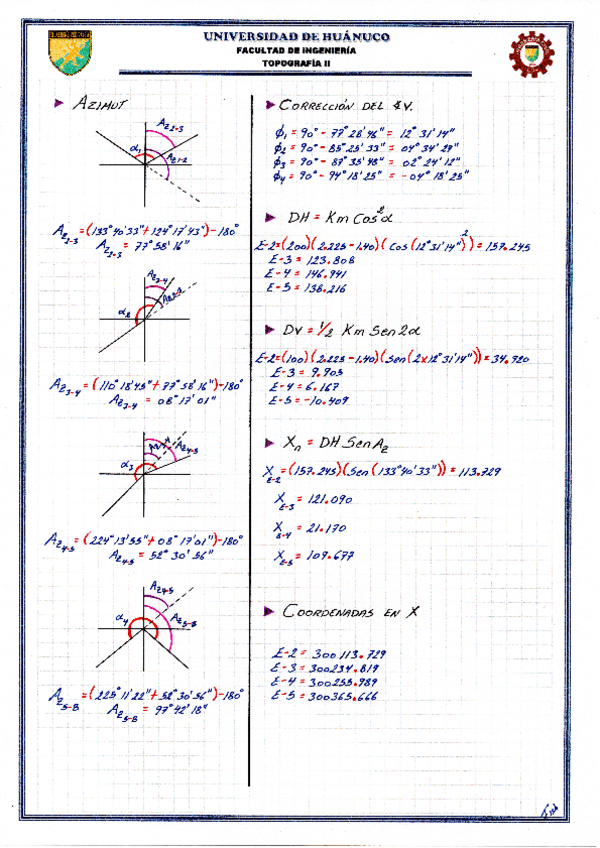 UNIVERSIDAD DE HUÁNUCO
FACULTAD DE INGENIERÍA
TOPOGRAFÍA II
AZIMUT
Az2-3
α1
Az1-2
Az2-3 = (133°40'33" + 124°17'43") - 180°
Az2-3 = 77°58'16"
Az3-4
Az2-3
α2
Az3-4 = (110°18'45" + 77°58'16") - 180°
Az3-4 = 08°17'01"
Az3-4
Az4-5
α3
Az4-5 = (224°13'55" + 08°17'01") - 180°
Az4-5 = 52°30'56"
Az4-5
α4
Az5-B
Az5-B = (225°11'22" + 52°30'56") - 180°
Az5-B = 97°42'18"
CORRECCIÓN DEL ∢V.
ϕ1 = 90° - 77°28'46" = 12°31'14"
ϕ2 = 90° - 85°25'33" = 04°34'27"
ϕ3 = 90° - 87°35'48" = 02°24'12"
ϕ4 = 90° - 94°18'25" = -04°18'25"
DH = Km Cos²α
E-2 = (200)(2.225 - 1.40)(Cos(12°31'14")²) = 157.245
E-3 = 123.808
E-4 = 146.941
E-5 = 138.216
DV = 1/2 Km Sen2α
E-2 = (100)(2.225 - 1.40)(Sen(2x12°31'14")) = 34.920
E-3 = 9.905
E-4 = 6.167
E-5 = -10.409
Xn = DH Sen Az
XE-2 = (157.245)(Sen(133°40'33")) = 113.729
XE-3 = 121.090
XE-4 = 21.170
XE-5 = 109.677
COORDENADAS EN X
E-2 = 300113.729
E-3 = 300234.819
E-4 = 300255.989
E-5 = 300365.666